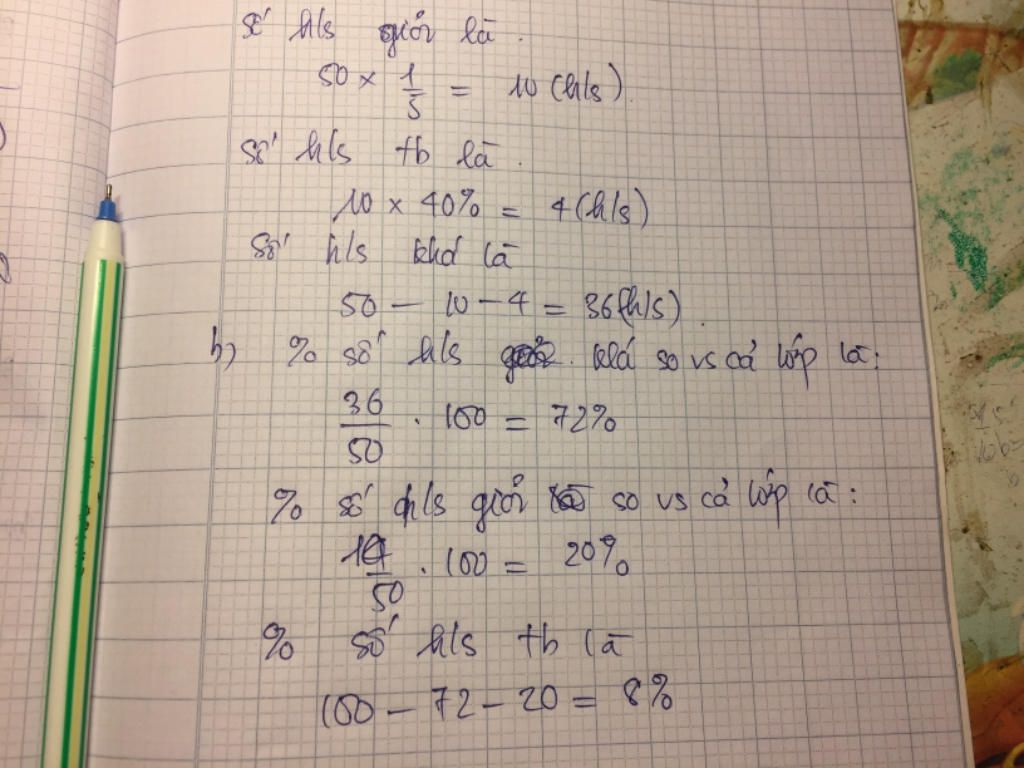 số h/s giỏi là.
50 × 1/5 = 10 (h/s).
Số h/s tb là.
10 × 40% = 4 (h/s)
Số h/s khá là
50 - 10 - 4 = 36 (h/s).
b) % số h/s khá so vs cả lớp là:
36/50 . 100 = 72%
% số h/s giỏi so vs cả lớp là:
10/50 . 100 = 20%
% số h/s tb là
100 - 72 - 20 = 8%